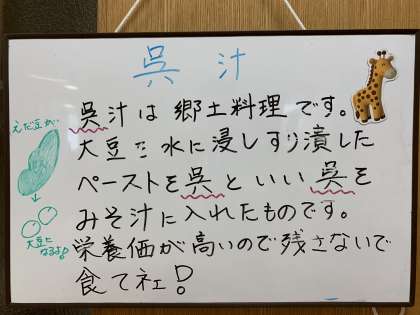 呉汁
呉汁は郷土料理です。
大豆を水に浸しすり潰した
ペーストを呉といい呉を
みそ汁に入れたものです。
栄養価が高いので残さないで
食てネェ!
えだ豆が
大豆に
なるよ!